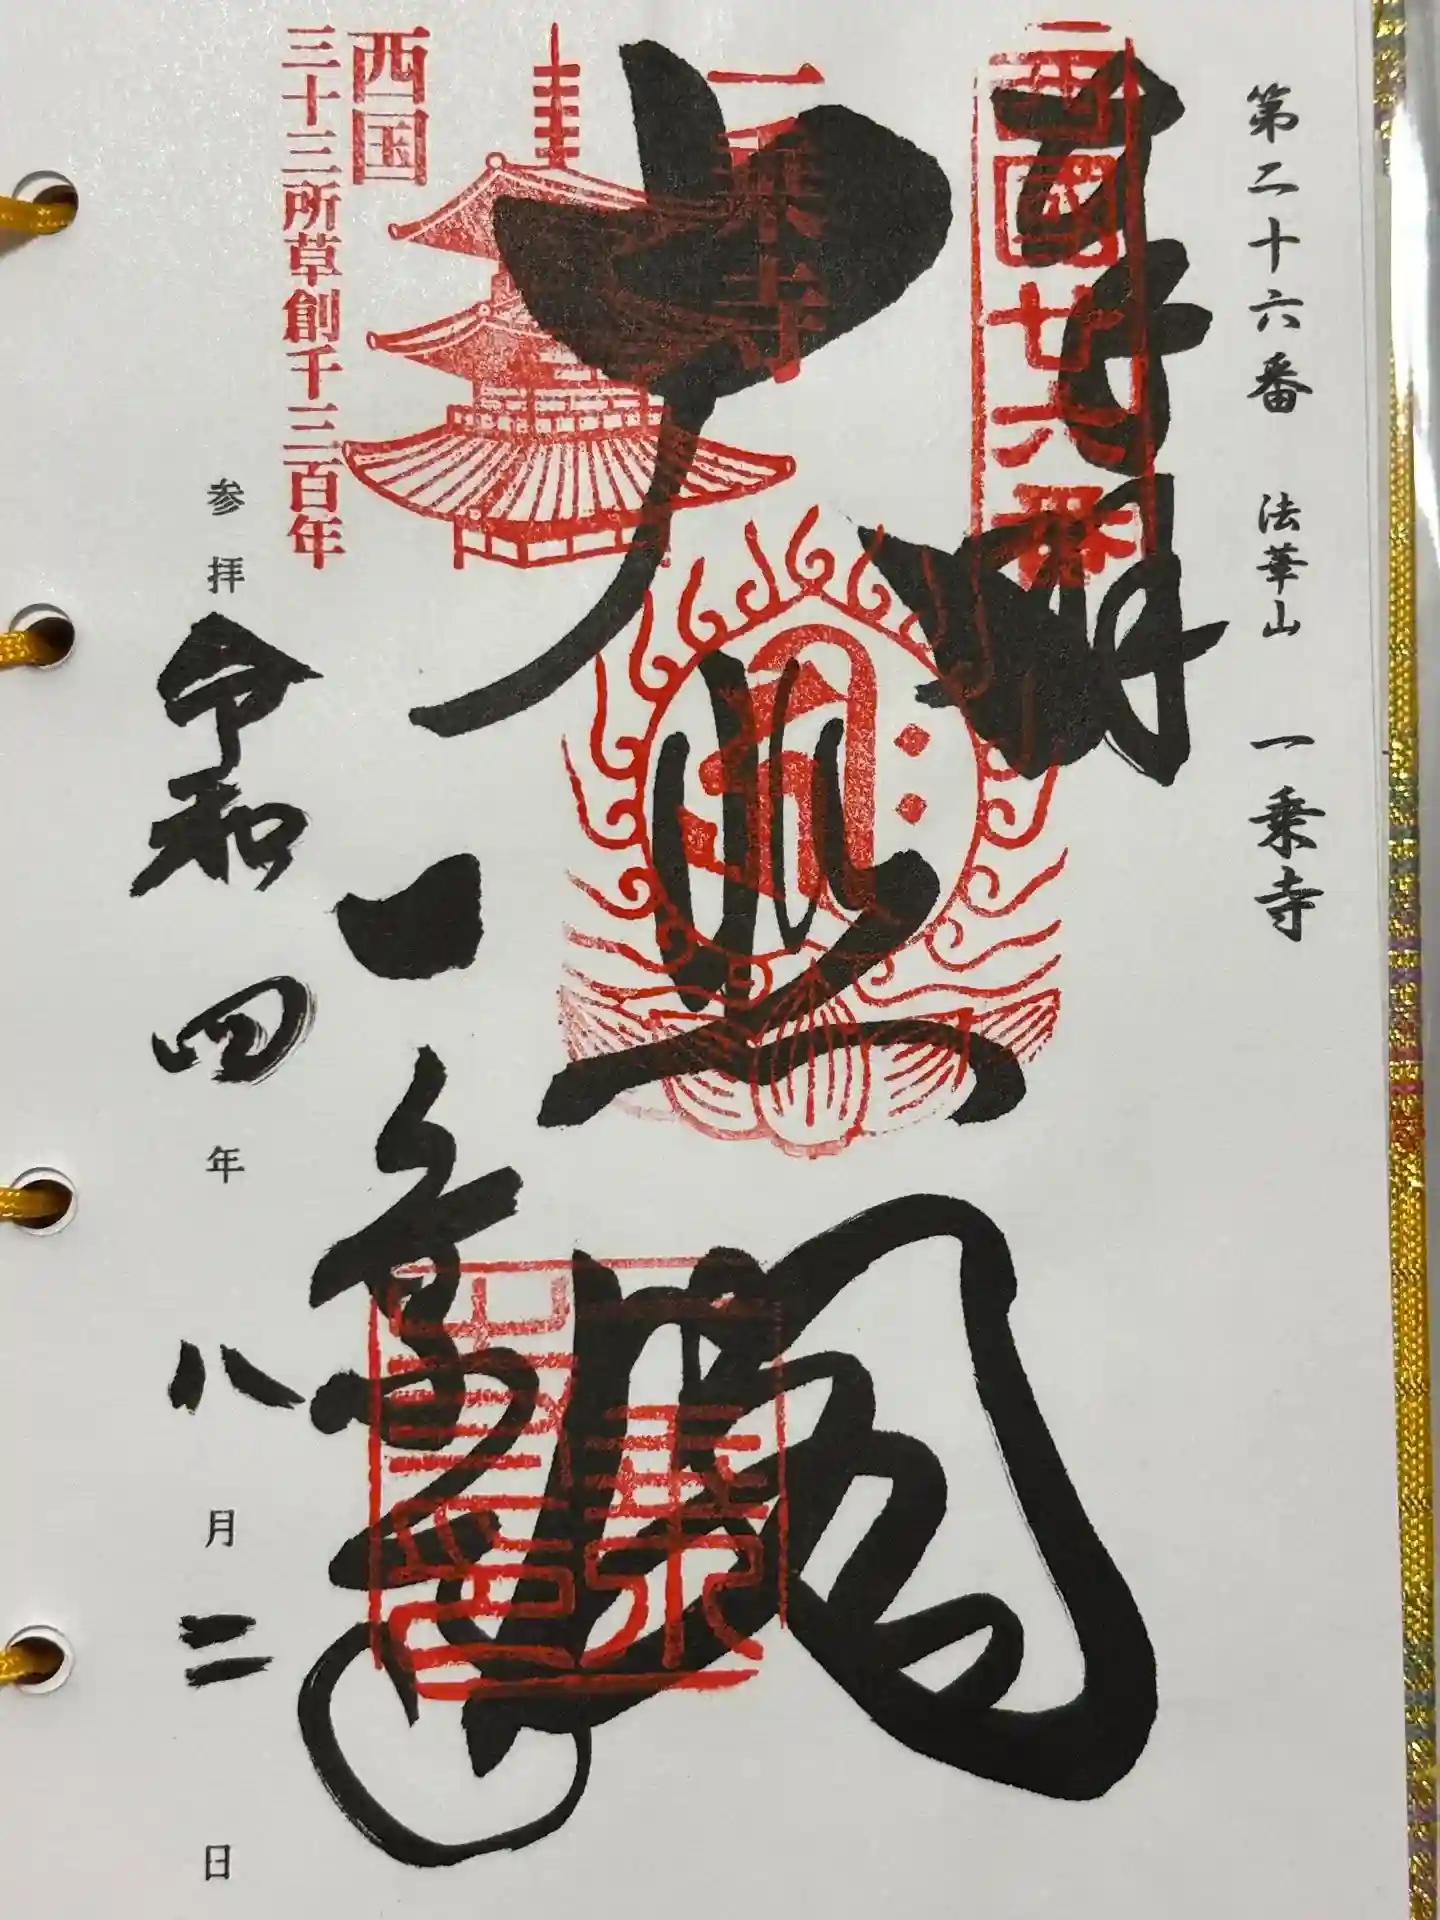 第二十六番 法華山 一乗寺
奉拝
西國廿六番
一乗寺
大悲閣
西国
三十三所草創千三百年
一乗寺
参拝 令和 四 年 八 月 二 日